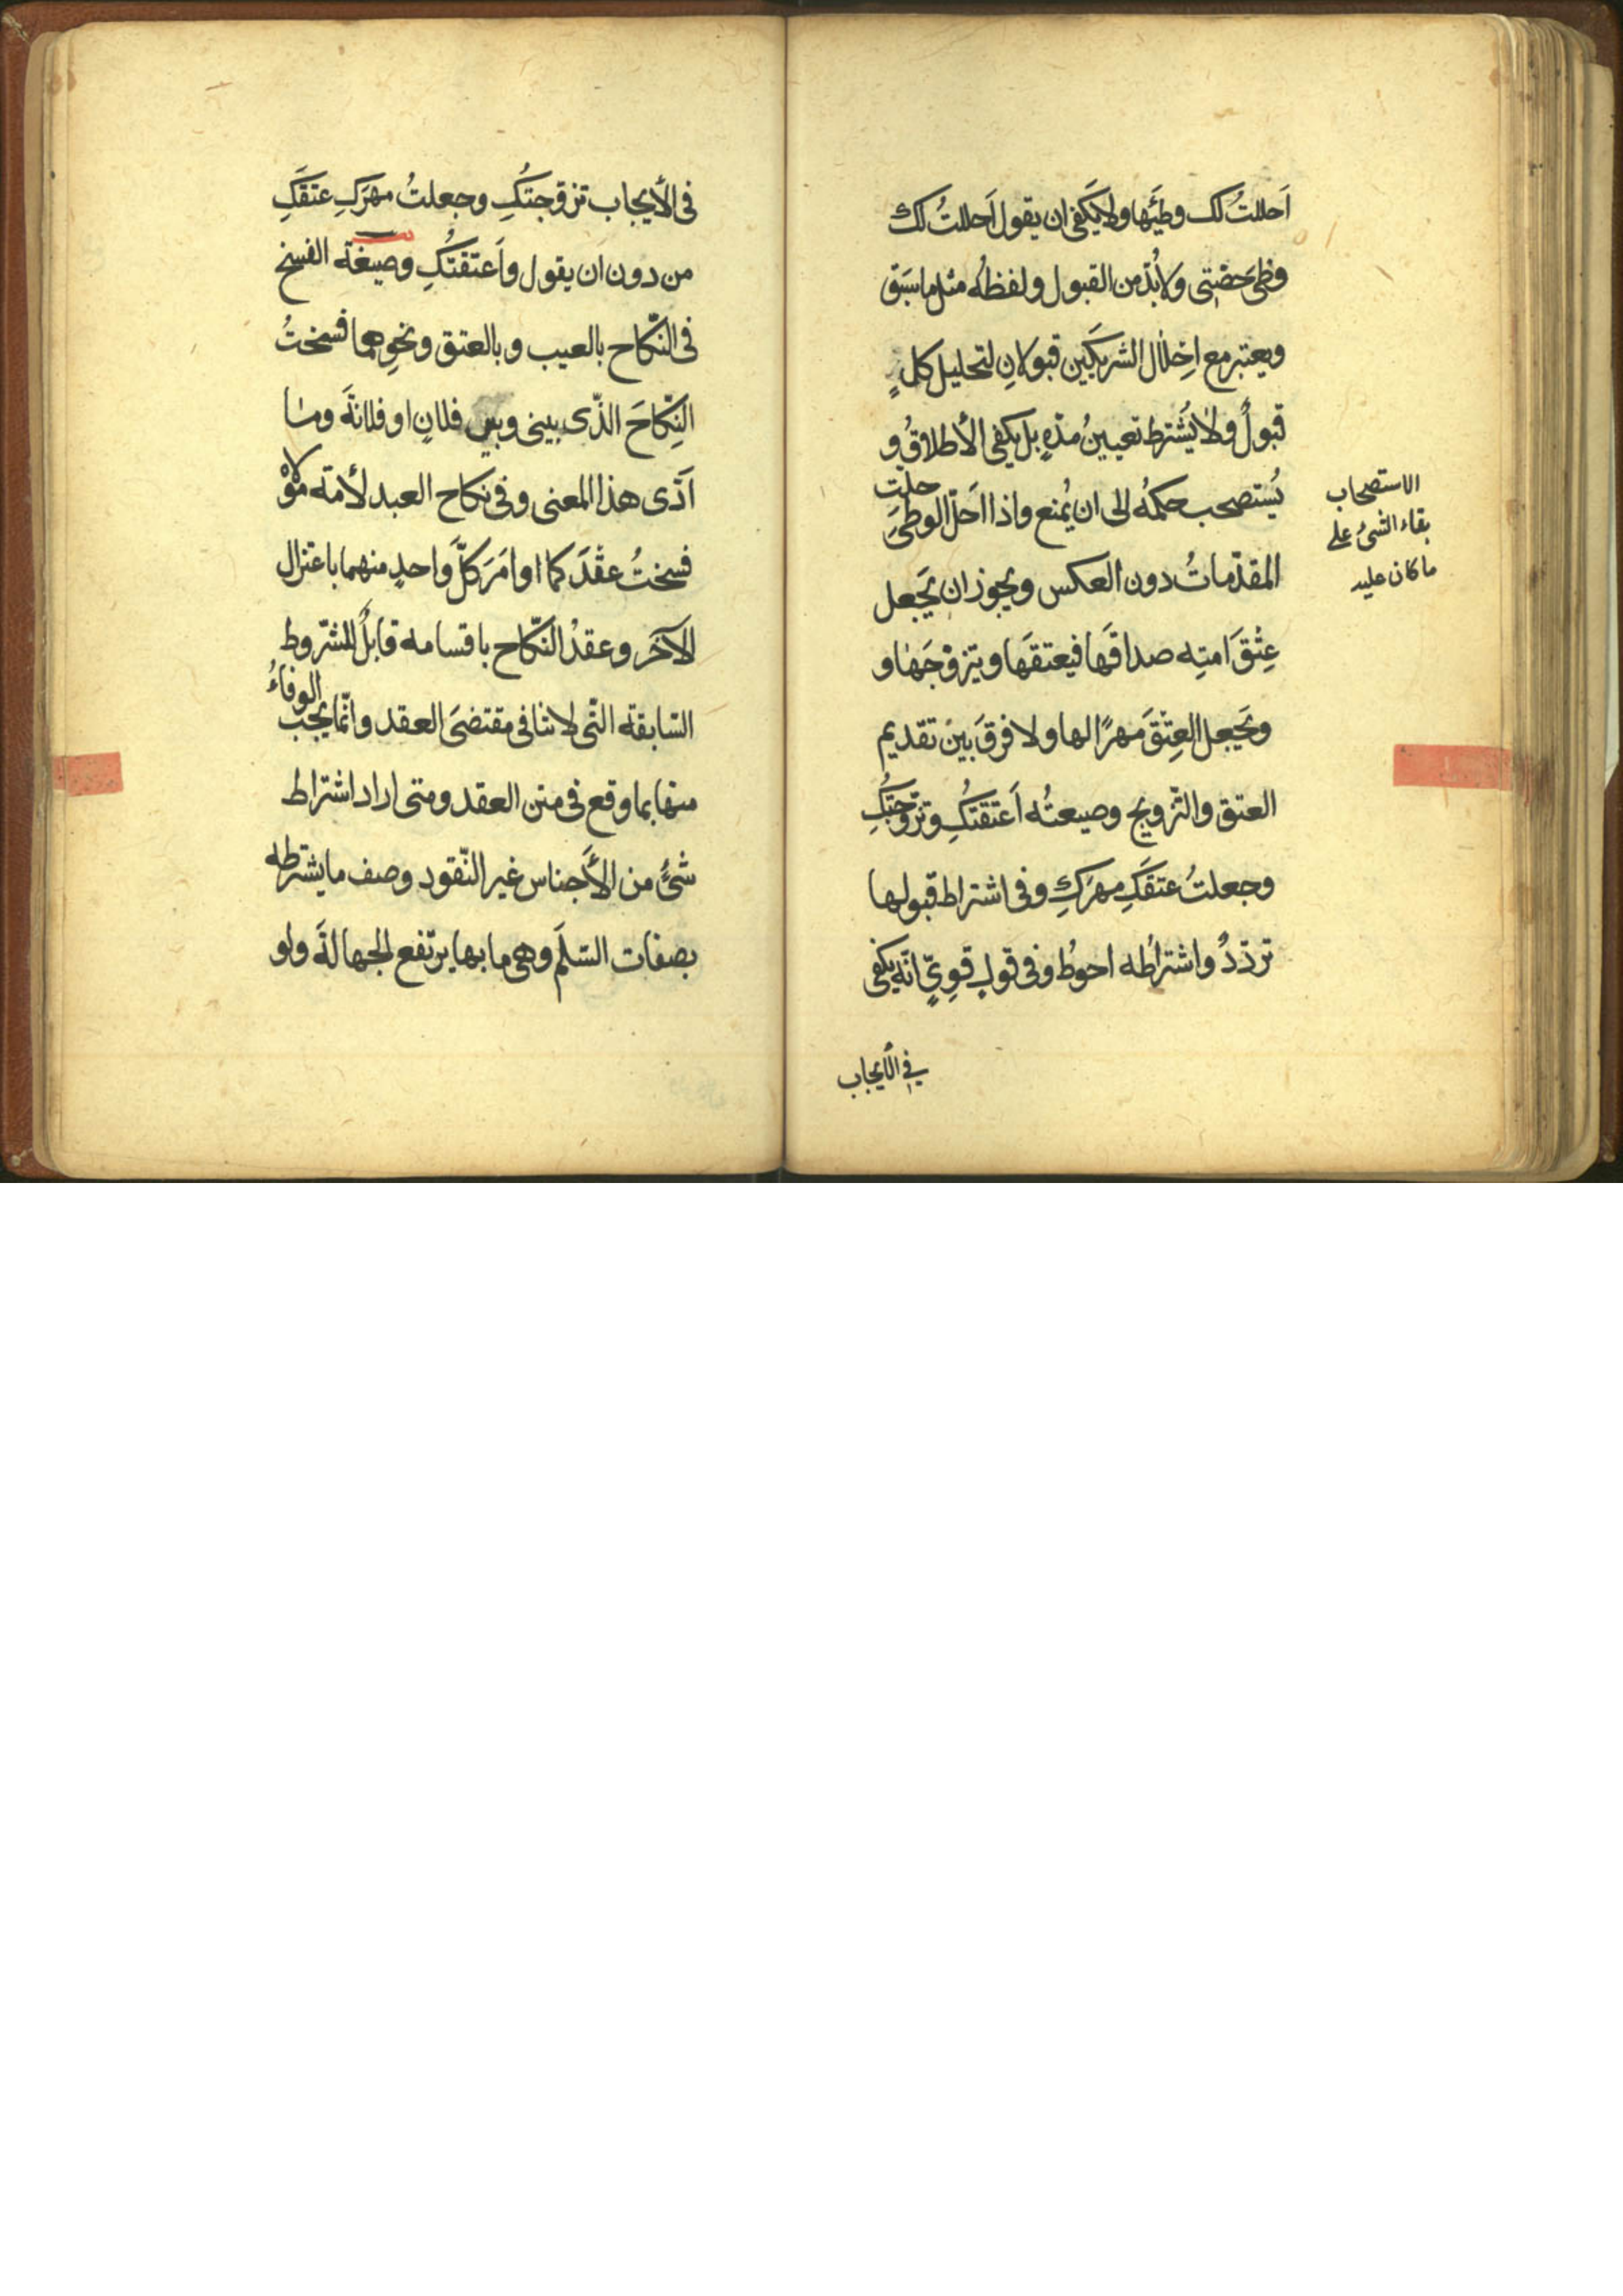 اَحللتُ لك وطيَها ولا يَكفى ان يقول اَحللتُ لك
وطىَ حصّتى ولابُدّ من القبول ولفظُه مثل ما سَبَق
ويعتبر مع اِحلال الشريكَين قبولانِ لتحليل كلٍ
قبولٌ ولا يُشترط تعيينُ مدّةٍ بل يكفى الأطلاقُ و
يُستصحب حكمُه الى ان يُمنع واذا اَحَلّ الوطىَ حلّت
المقدّماتُ دون العكس ويجوز ان يَجعل
عِتْقَ امتِه صداقَها فيعتقَها ويتزوّجَها و
ويَجعل العِتْقَ مهرًا لها ولا فرقَ بينَ تقديم
العتق والتّزويج وصيغتُه اَعتَقتُكِ وتزوّجتُكِ
وجعلتُ عتقَكِ مهرَكِ وفى اشتراط قبولها
تردّدٌ واشتراطُه احوطُ وفى قولٍ قوِىٍّ انّه يكفى
فى الأيجاب
الاستصحاب
بقاء الشىُ على
ما كان عليه
فى الأيجاب تزوّجتُكِ وجعلتُ مهرَكِ عتقَكِ
من دون ان يقول واَعتقتُكِ وصيغة الفسخ
فى النّكاح بالعيب وبالعتق ونحوِهما فسختُ
النِّكاحَ الذّى بينى وبين فلانٍ او فلانةَ وما
اَدّى هذا المعنى وفى نكاح العبد لأمة مولاهْ
فسختُ عقدَكما او امَرَ كلَّ واحدٍ منهما باعتزال
الآخَر وعقدُ النّكاح باقسامه قابلٌ للشّروط
السّابقة الّتى لا تنافى مقتضَى العقد وانّما يَجب الوفاءُ
منها بما وقع فى متن العقد ومتى اراد اشتراط
شىُّ من الأَجناس غير النّقود وصف ما يشترطه
بصفات السّلَم وهى ما بها يرتفع الجهالةَ ولو